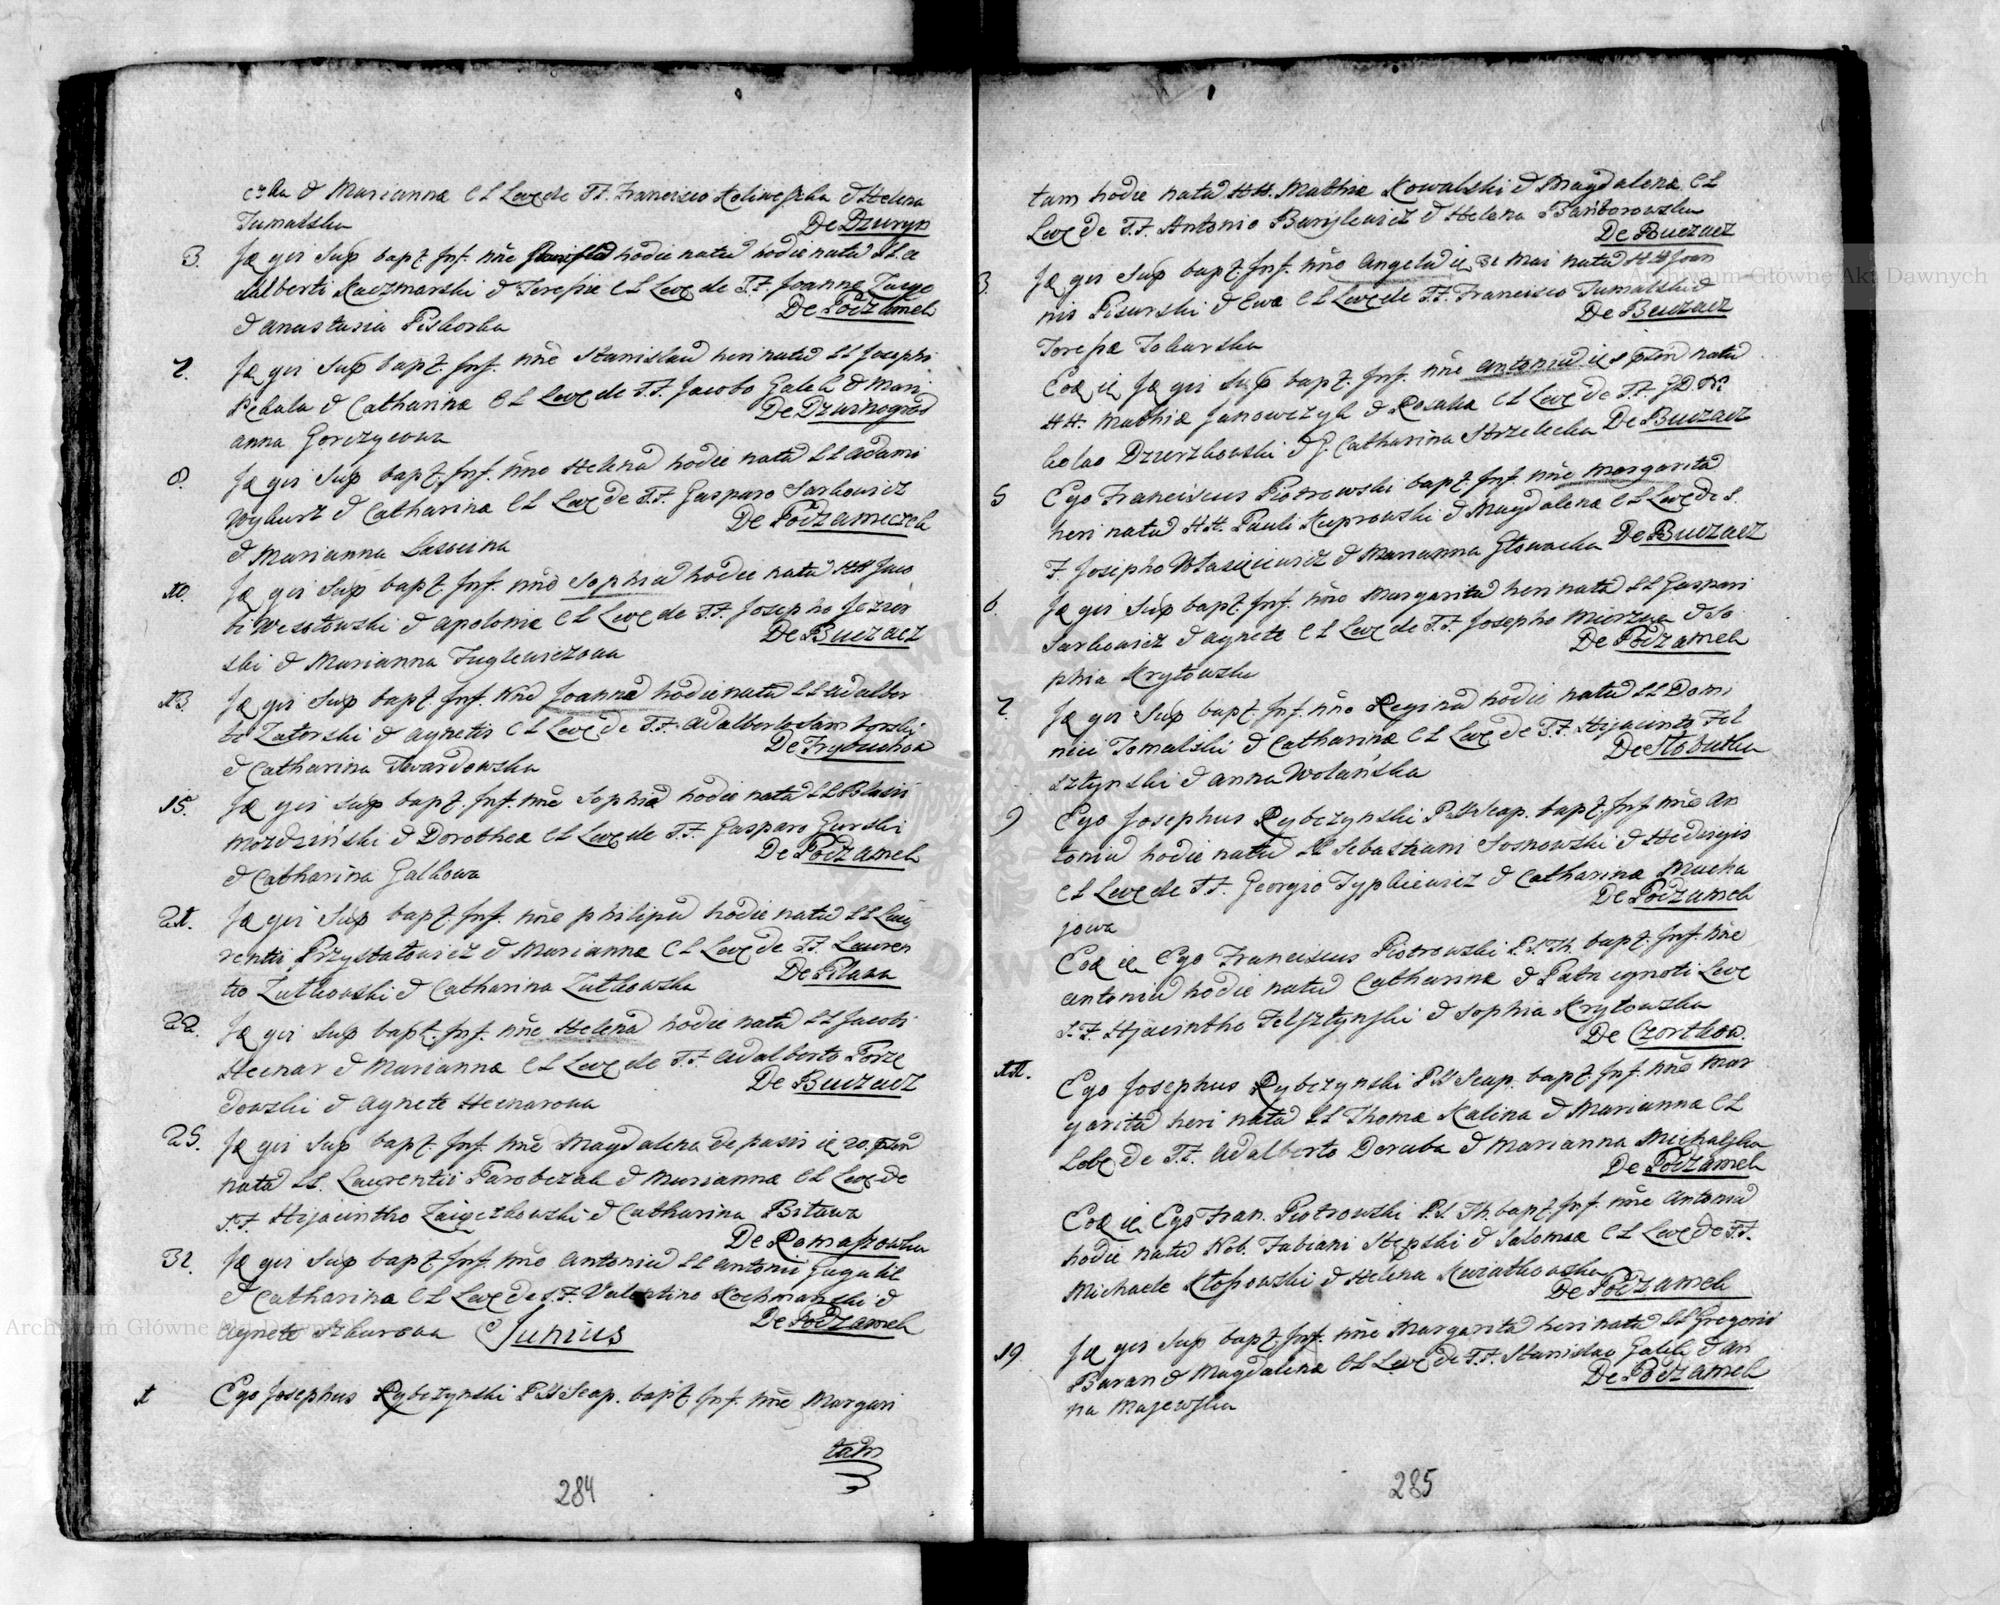 cska & Mariannæ CL Leve de P.P. Francisco Koliweszka & Helena
Tumalska De Dzuryn
3. Jæ qei Sup bapt. Inf. nne hodie natu hodie natu LL A
dalberti Kaczmarski & Teresiæ CL Leve de P.P. Joanne Zayc
& Anastasia Piskorka De Podzamek
7. Jæ qei Sup bapt. Inf. nne Stanislau heri natu LL Josephi
Pekala & Catharinæ CL Leve de P.P. Jacobo Galek & Mari
anna Gorczycowa De Dzwinogrod
8. Jæ qei Sup bapt. Inf. nne Helena hodie nata LL Adami
Wykurz & Catharinæ CL Leve de P.P. Gasparo Sarkowicz
& Marianna Lasocina De Podzameczek
10. Jæ qei Sup bapt. Inf. nne Sophia hodie nata HH Jaco
bi Wesołowski & Apoloniæ CL Leve de P.P. Josepho Jezier
ski & Marianna Juglewiczowa De Buczacz
13. Jæ qei Sup bapt. Inf. nne Joanna hodie nata LL Adalber
to Zatorski & Agnetis CL Leve de P.P. Adalberto Samborski
& Catharina Twardowska De Trybuchowa
15. Jæ qei Sup bapt. Inf. nne Sophia hodie nata LL Blasii
Mozdziński & Dorotheæ CL Leve de P.P. Gasparo Gurski
& Catharina Galkowa De Podzamek
21. Jæ qei Sup bapt. Inf. nne Philipu hodie natu LL Lau
rentii Przystałowicz & Mariannæ CL Leve de P.P. Lauren
tio Zutkowski & Catharina Zutkowska De Pilawa
22. Jæ qei Sup bapt. Inf. nne Helena hodie nata LL Jacobi
Hecnar & Mariannæ CL Leve de P.P. Adalberto Porze
dowski & Agnete Hecnarowa De Buczacz
25. Jæ qei Sup bapt. Inf. nne Magdalena de pasis ie 20. præn
nata LL. Laurentii Parobczak & Mariannæ CL Leve de
P.P. Hijacintho Zaiączkowski & Catharina Bitawa
De Romaszowka
31. Jæ qei Sup bapt. Inf. nne Antoniu LL Antonii Gagatil
& Catharinæ CL Leve de P.P. Valentino Kochmanski &
Agnete Szkurowa De Podzamek
Junius
1 Ego Josephus Rybczynski P.S. Scap. bapt. Inf. nne Margari
tam
284
tam hodie nata HH. Mathiæ Kowalski & Magdalenæ CL
Leve de P.P. Antonio Barylewicz & Helena Bamborowska
De Buczacz
3. Jæ qei Sup bapt. Inf. nne Angela ie 31 Mai nata HH Joan
nis Pisurski & Evæ CL Leve de P.P. Francisco Tumalski &
Teresiæ Tokarska De Buczacz
Eod ie Jæ qei Sup bapt. Inf. nne Antoniu ie præn natu
HH. Mathiæ Janowczyk & Rosaliæ CL Leve de P.P. G.D. Ni
kolao Dzierzkowski & G. Catharina Strzelecka De Buczacz
5 Ego Franciscus Piotrowski bapt. Inf. nne Margarita
heri nata HH. Pauli Kuprowski & Magdalenæ CL Leve de P.
P. Josepho Własiciewicz & Marianna Głowacka De Buczacz
6. Jæ qei Sup bapt. Inf. nne Margarita heri nata LL Gaspari
Sarkowicz & Agnete CL Leve de P.P. Josepho Mierzwa & So
phia Krytowska De Podzamek
7. Jæ qei Sup bapt. Inf. nne Regina hodie nata LL Domi
nici Tomalski & Catharinæ CL Leve de P.P. Hijacinto Fel
sztynski & Anna Wolańska De Słobutka
9 Ego Josephus Rybczynski P.S. Scap. bapt. Inf nne An
toniu hodie natu LL Sebastiani Sosnowski & Hedvigis
CL Leve de P.P. Georgio Typkiewicz & Catharina Mucha
jowa De Podzamek
Eod ie Ego Franciscus Piotrowski P.S. Th. bapt. Inf. nne
Antoniu hodie natu Catharinæ & Patri ignoti Leve
P.P. Hyacintho Felsztynski & Sophia Krytowska
De Czortkow.
11. Ego Josephus Rybczynski P.S Scap. bapt. Inf. nne Mar
garita heri nata LL Thomæ Kalina & Mariannæ CL
Leve de P.P. Adalberto Deruba & Marianna Michalska
De Podzamek
Eod ie Ego Fran. Piotrowski P.S. Th. bapt. Inf. nne Antoniu
hodie natu Nob. Fabiani Stepski & Salomeæ CL Leve de P.P.
Michaele Kłosowski & Helena Kwiatkowska
De Podzamek
19. Jæ qei Sup bapt. Inf. nne Margarita heri nata LL Gregorii
Baran & Magdalenæ CL Leve de P.P. Stanislao Galek & An
na Majewska De Podzamek
285
Archiwum Główne Akt Dawnych
Archiwum Główne Akt Dawnych